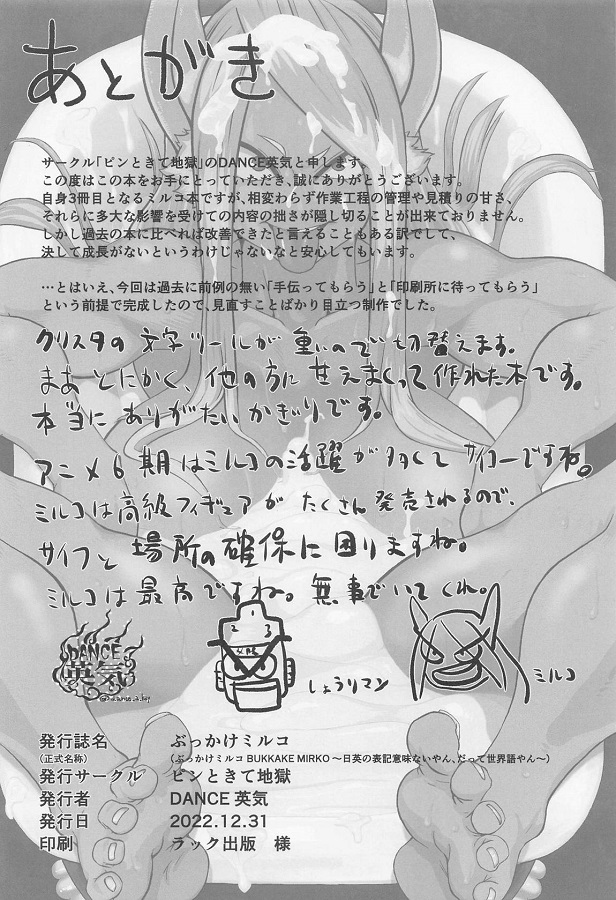 あとがき
サークル「ピンときて地獄」のDANCE英気と申します。
この度はこの本をお手にとっていただき、誠にありがとうございます。
自身3冊目となるミルコ本ですが、相変わらず作業工程の管理や見積りの甘さ、
それらに多大な影響を受けての内容の拙さが隠し切ることが出来ておりません。
しかし過去の本に比べれば改善できたと言えることもある訳でして、
決して成長がないというわけじゃないなと安心してもいます。
…とはいえ、今回は過去に前例の無い「手伝ってもらう」と「印刷所に待ってもらう」
という前提で完成したので、見直すことばかり目立つ制作でした。
クリスタの文字ツールが重いので切替えます。
まあとにかく、他の方に甘えまくって作れた本です。
本当にありがたいかぎりです。
アニメ6期はミルコの活躍が多くてサイコーですね。
ミルコは高級フィギュアがたくさん発売されるので、
サイフと場所の確保に困りますね。
ミルコは最高ですね。無事でいてくれ。
1
2 3
DANCE
英気
しょうりマン
ミルコ
発行誌名 ぶっかけミルコ
(正式名称) (ぶっかけミルコ BUKKAKE MIRKO ～日英の表記意味ないやん、だって世界語やん～)
発行サークル ピンときて地獄
発行者 DANCE 英気
発行日 2022.12.31
印刷 ラック出版 様